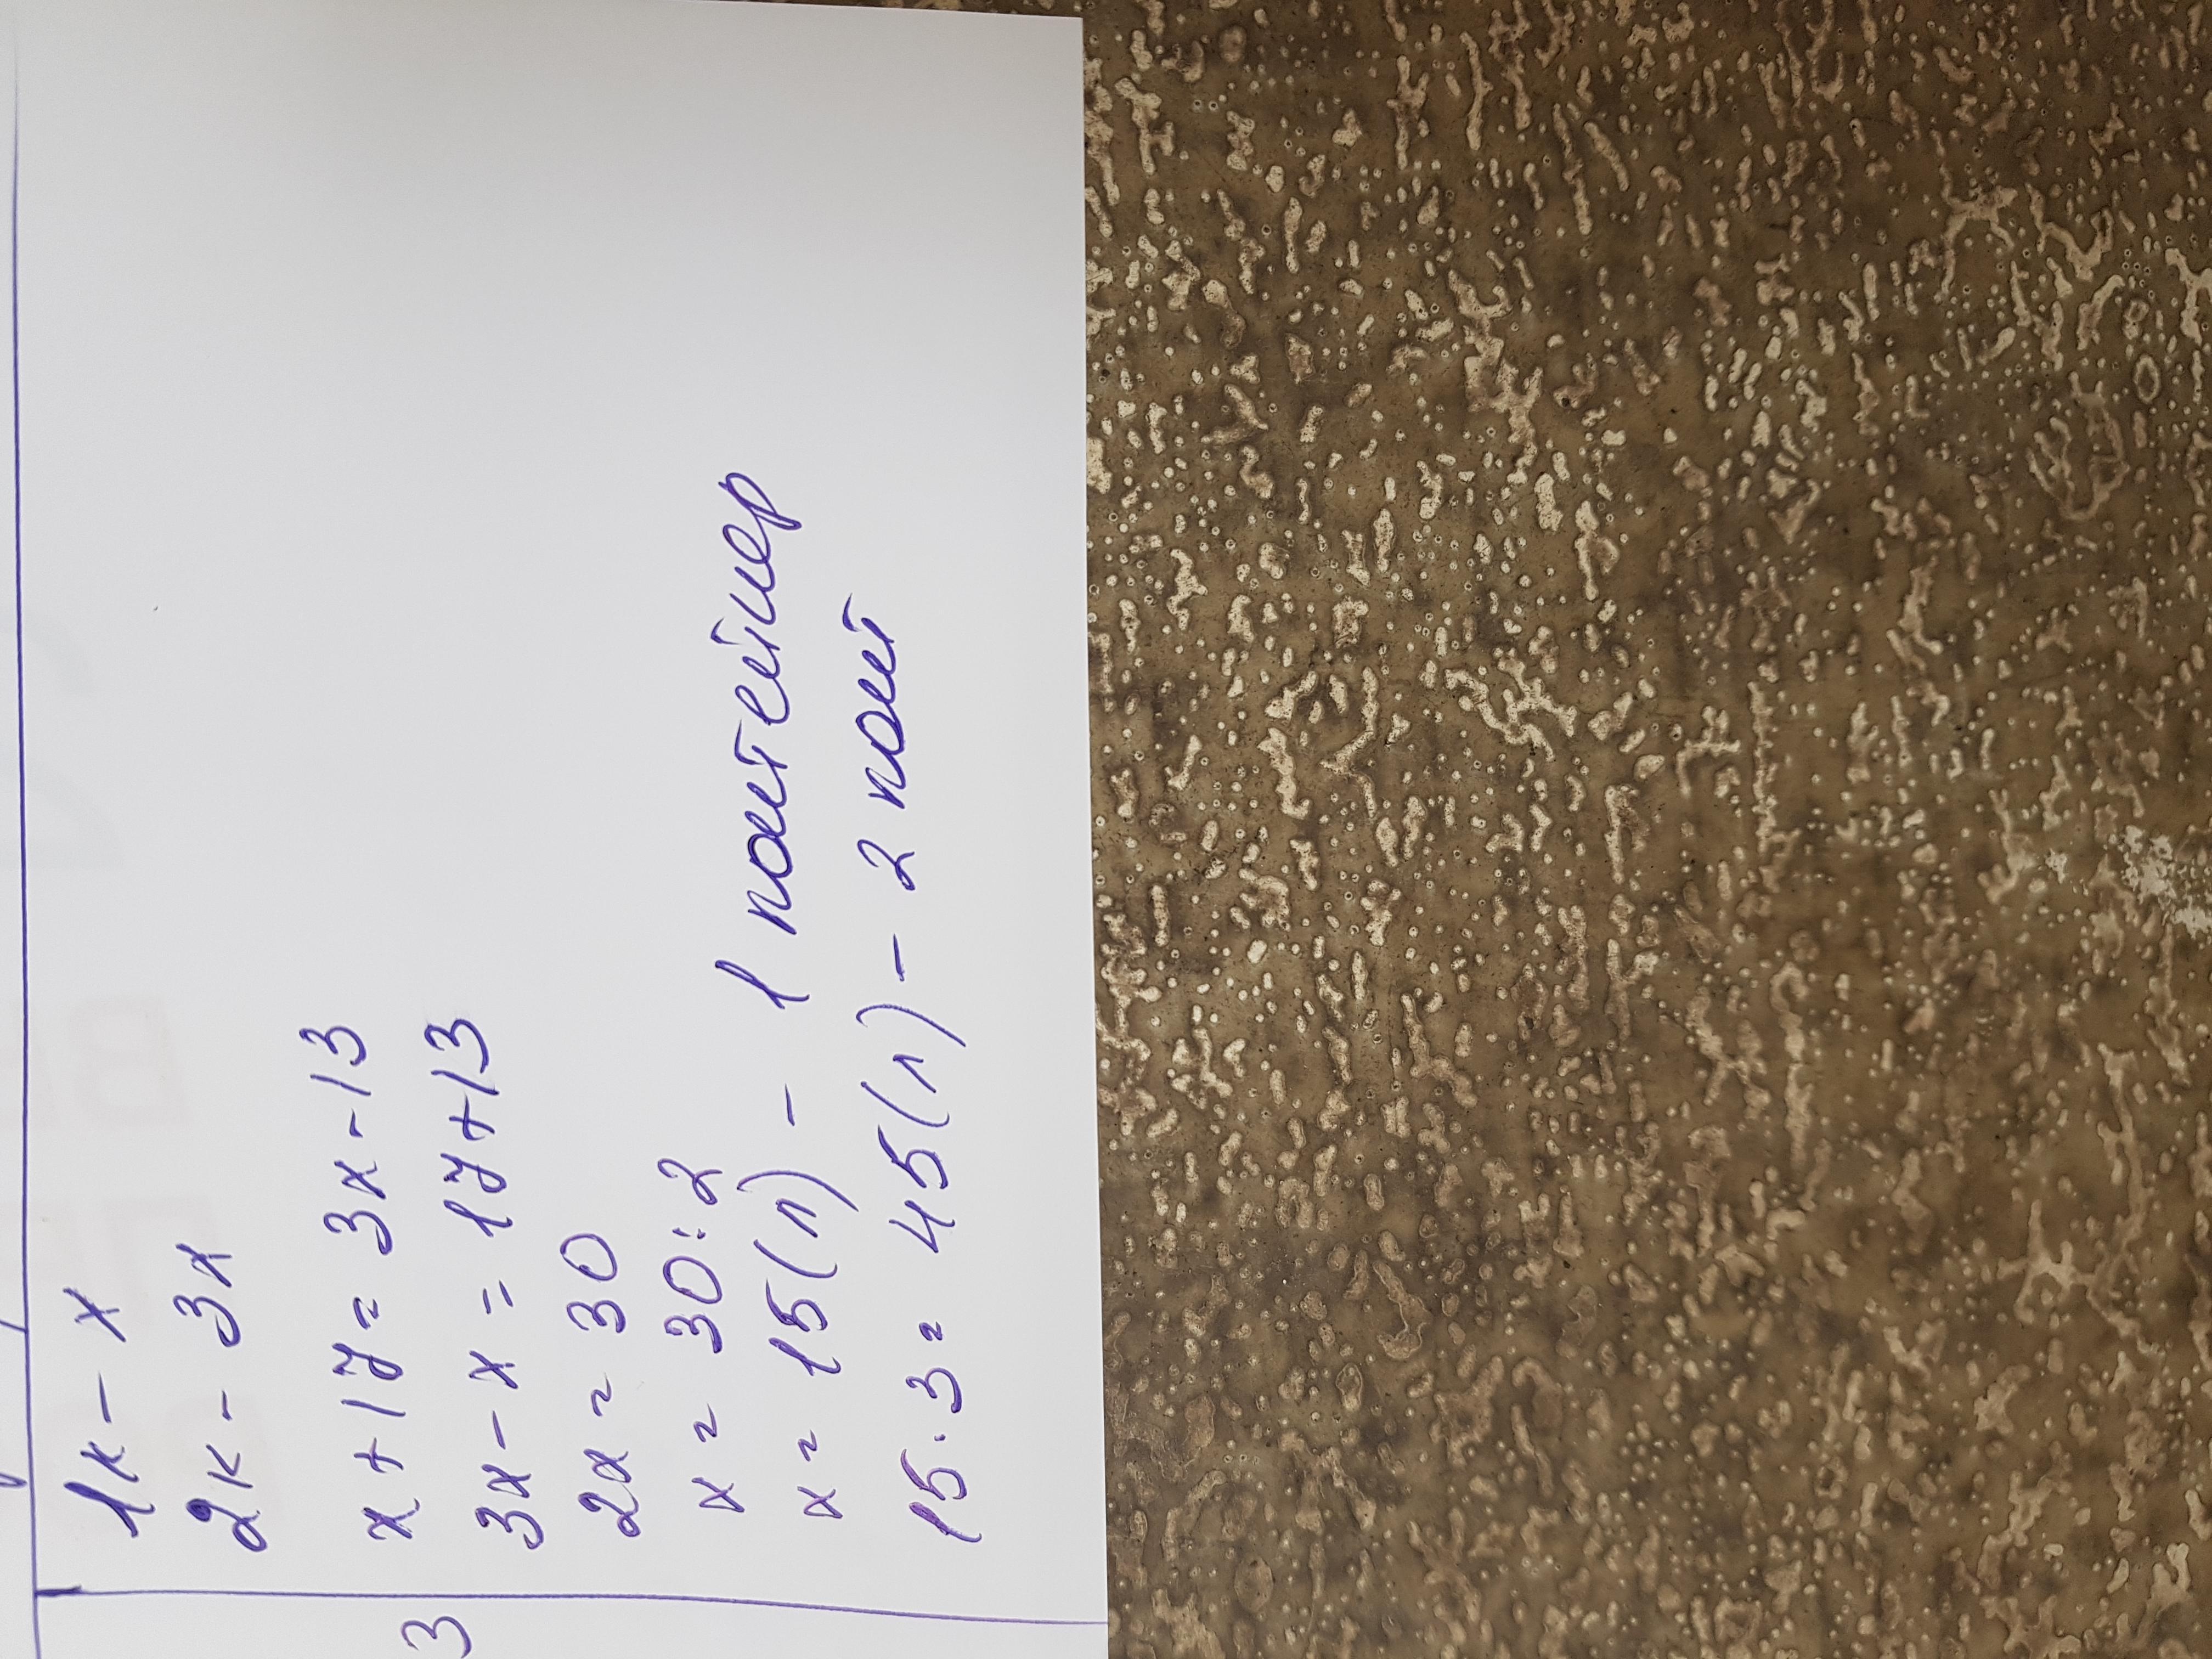 1к - x
2к - 3x
3
x + 17 = 3x - 13
3x - x = 17 + 13
2x = 30
x = 30 : 2
x = 15 (л) - 1 контейнер
15 · 3 = 45 (л) - 2 конт